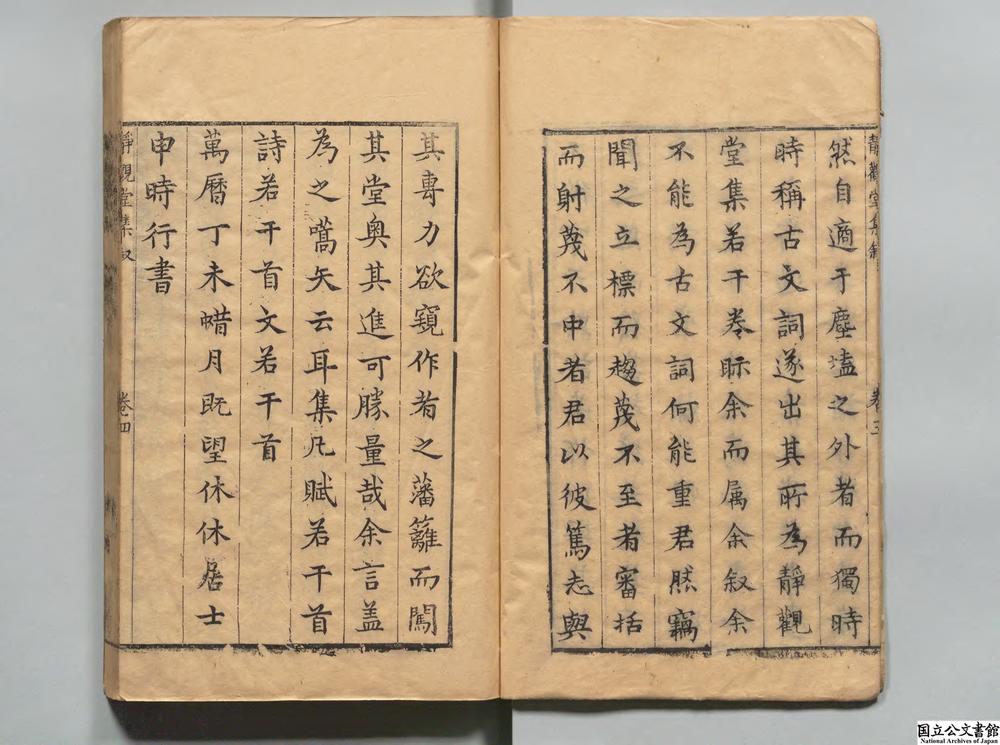 靜觀堂集叙
卷三
然自適于塵壒之外者而獨時
時稱古文詞遂出其所為靜觀
堂集若干卷眎余而属余叙余
不能為古文詞何能重君然竊
聞之立標而趨蔑不至者審括
而射蔑不中者君以彼篤志與
其專力欲窺作者之藩籬而闖
其堂奧其進可勝量哉余言盖
為之嚆矢云耳集凡賦若干首
詩若干首文若干首
萬曆丁未蜡月既望休休居士
申時行書
靜觀堂集叙
卷四
国立公文書館
National Archives of Japan